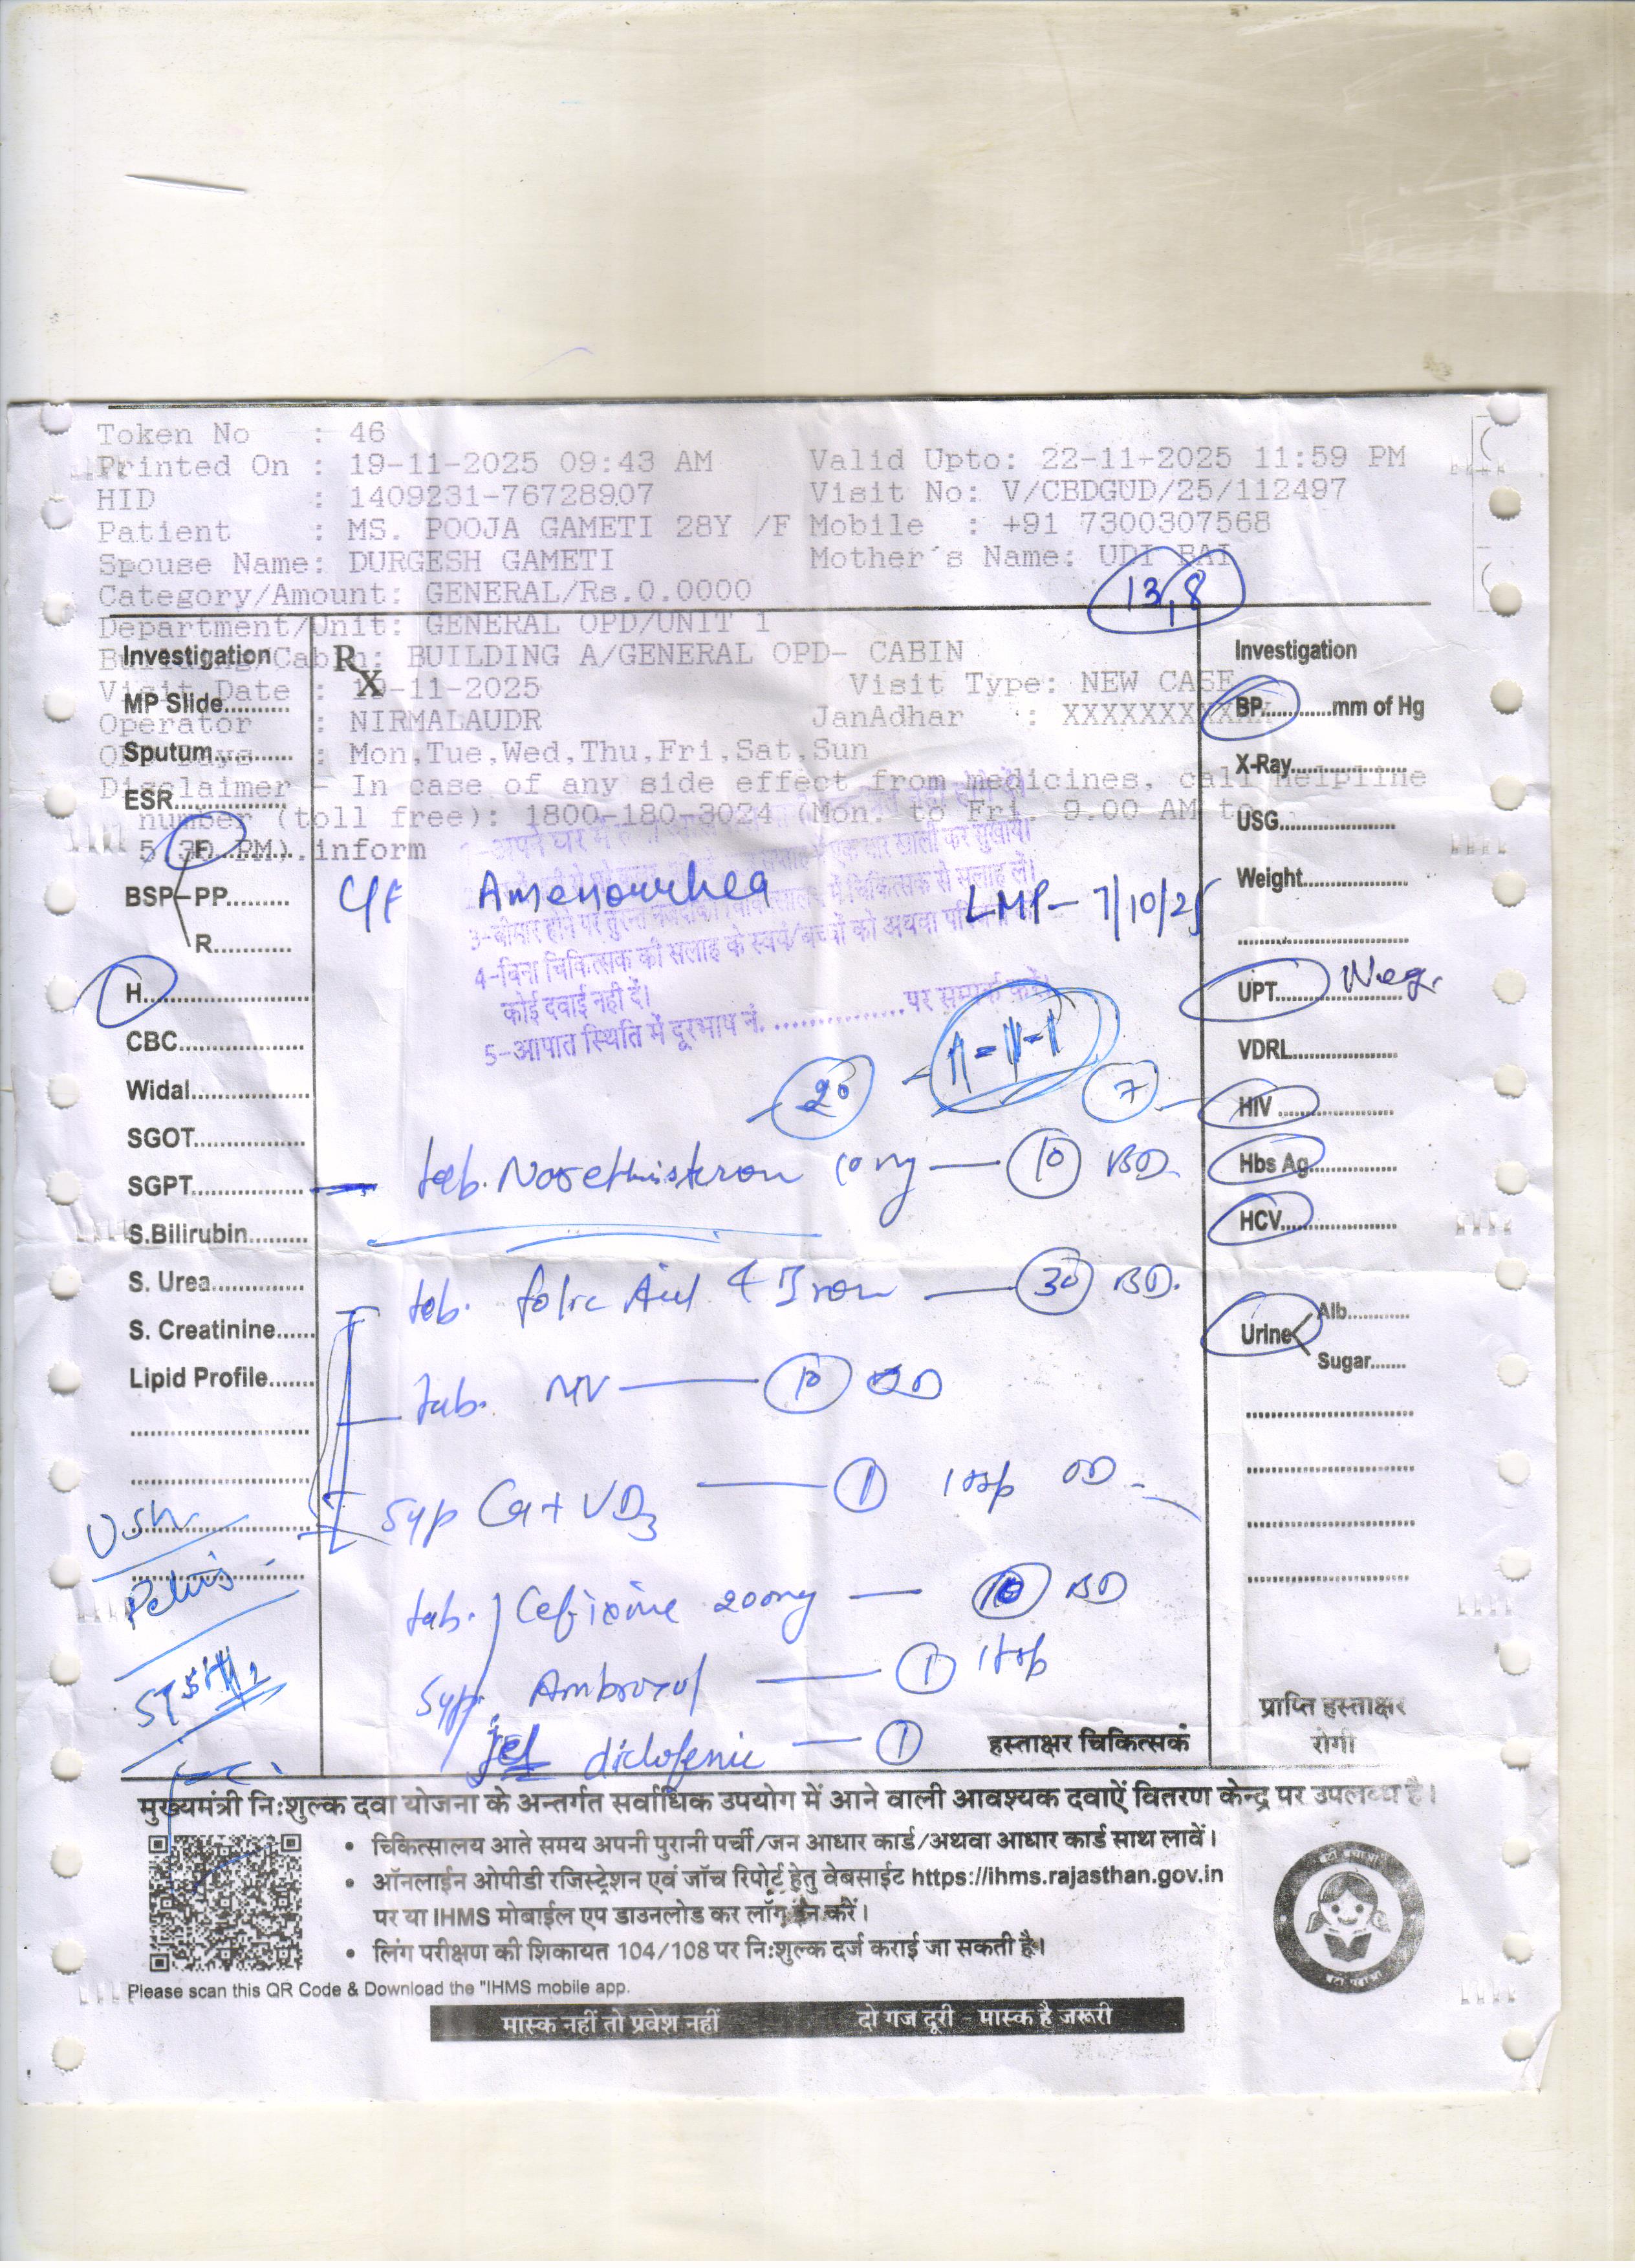 Token No : 46
Printed On : 19-11-2025 09:43 AM Valid Upto: 22-11-2025 11:59 PM
HID : 1409231-76728907 Visit No: V/CBDGUD/25/112497
Patient : MS. POOJA GAMETI 28Y /F Mobile : +91 7300307568
Spouse Name: DURGESH GAMETI Mother's Name: UDI BAI
Category/Amount: GENERAL/Rs.0.0000
13,8
Department/Unit: GENERAL OPD/UNIT 1
BUILDING A/GENERAL OPD- CABIN
Visit Date : 19-11-2025 Visit Type: NEW CASE
Operator : NIRMALAUDR JanAdhar : XXXXXXXXXXX
: Mon,Tue,Wed,Thu,Fri,Sat,Sun
Disclaimer - In case of any side effect from medicines, call Helpline
number (toll free): 1800-180-3024 (Mon. to Fri. 9.00 AM to
5.30 PM).inform
Investigation
Rx
MP Slide..........
Sputum............
ESR.................
F............
BSP PP.........
R............
H........................
CBC...................
Widal..................
SGOT.................
SGPT.................
S.Bilirubin.........
S. Urea..............
S. Creatinine......
Lipid Profile.......
Pelvis
C/F Amenorrhea LMP- 7/10/25
4-बिना चिकित्सक की सलाह के स्वयं/बच्चों को अथवा
कोई दवाई नही दें।
5-आपात स्थिति में दूरभाष नं. .................पर सम्पर्क करें।
20 7
tab. Norethisteron 10 mg — 10 BD
tab. folic Acid & Iron — 30 BD.
tab. MV — 10 OD
Syp Ca + VD3 — 1 1tsp OD
tab. Cefixime 200mg — 10 BD
Syp. Ambroxol — 1 1tsp
jel diclofenic — 1
हस्ताक्षर चिकित्सक
Investigation
BP............mm of Hg
X-Ray....................
USG....................
Weight..................
UPT.................... Neg.
VDRL..................
HIV ....................
Hbs Ag...............
HCV....................
Urine Alb...........
Sugar.......
प्राप्ति हस्ताक्षर
रोगी
मुख्यमंत्री नि:शुल्क दवा योजना के अन्तर्गत सर्वाधिक उपयोग में आने वाली आवश्यक दवाऐं वितरण केन्द्र पर उपलब्ध है।
• चिकित्सालय आते समय अपनी पुरानी पर्ची/जन आधार कार्ड/अथवा आधार कार्ड साथ लावें।
• ऑनलाईन ओपीडी रजिस्ट्रेशन एवं जॉच रिपोर्ट हेतु वेबसाईट https://ihms.rajasthan.gov.in
पर या IHMS मोबाईल एप डाउनलोड कर लॉग ईन करें।
• लिंग परीक्षण की शिकायत 104/108 पर नि:शुल्क दर्ज कराई जा सकती है।
Please scan this QR Code & Download the "IHMS mobile app.
मास्क नहीं तो प्रवेश नहीं दो गज दूरी - मास्क है जरूरी